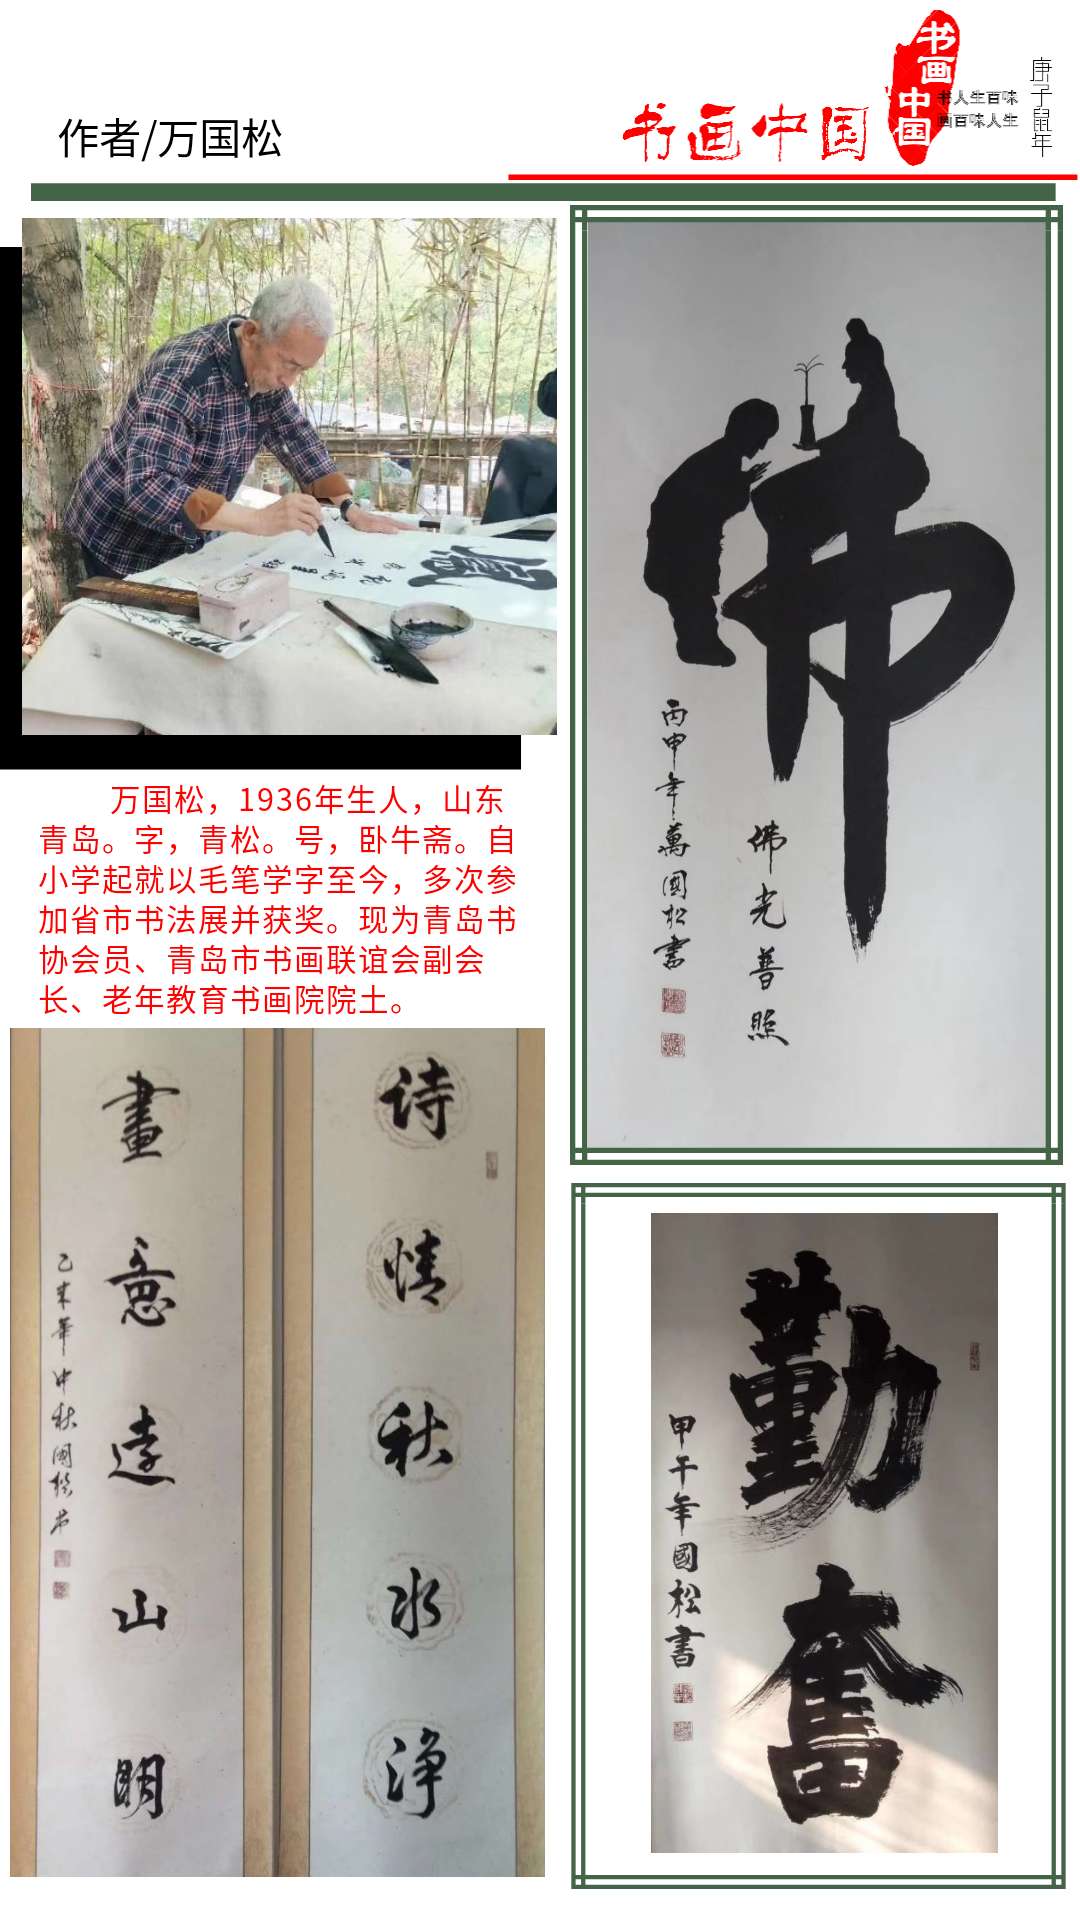 作者/万国松
书画中国
书画中国
书人生百味
画百味人生
庚子鼠年
万国松，1936年生人，山东
青岛。字，青松。号，卧牛斋。自
小学起就以毛笔学字至今，多次参
加省市书法展并获奖。现为青岛书
协会员、青岛市书画联谊会副会
长、老年教育书画院院士。
佛
佛光普照
丙申年萬國松書
诗情秋水淨
畫意遠山明
乙未年中秋國松书
勤奮
甲午年國松書